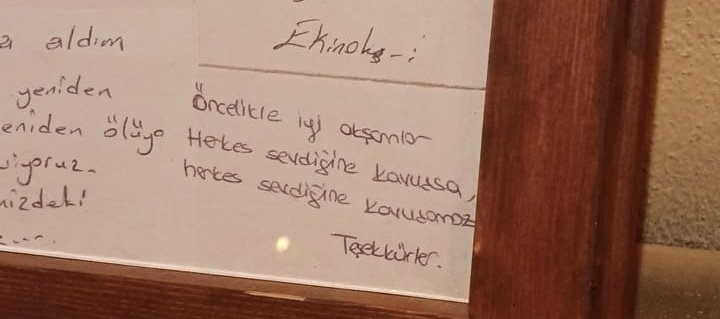 aldım
yeniden
eniden ölüyo
iyoruz.
mizdeki
.....
Ekinoks-i
Öncelikle iyi akşamlar
Herkes sevdiğine kavuşsa,
herkes sevdiğine kavuşamaz
Teşekkürler.